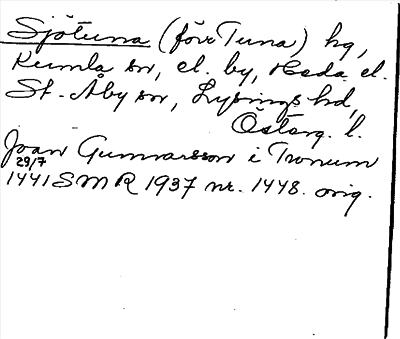 Sjötuna (förr Tuna) hg,
Kumla sn, el. by, Heda el.
St. Åby sn, Lysings hd,
Östarg. l.
Joan Gunnarsson i Tronum
29/7
1441 SMR 1937 nr. 1448. orig.